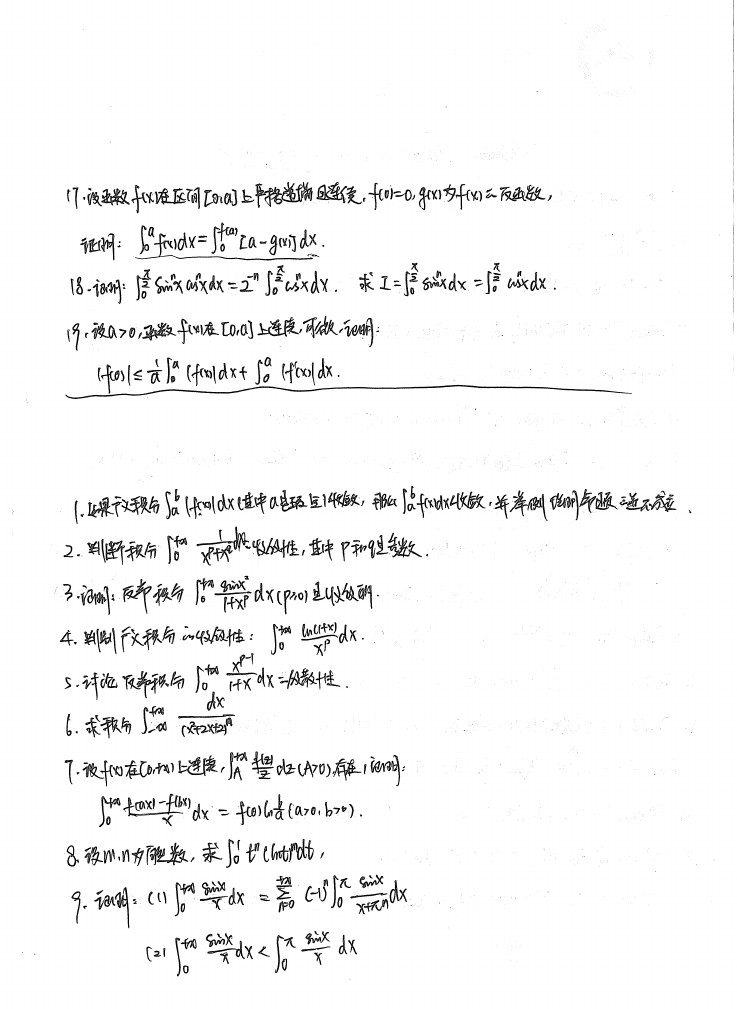 17. 设函数 f(x)在区间[0,a]上严格递增且连续, f(0)=0, g(x)为f(x)之反函数,
证明: ∫₀ᵃ f(x)dx = ∫₀^{f(a)} [a-g(x)]dx.
18. 证明: ∫₀^{π/2} sinⁿx cosⁿx dx = 2⁻ⁿ ∫₀^{π/2} cosⁿx dx. 求 I = ∫₀^{π/2} sinⁿx dx = ∫₀^{π/2} cosⁿx dx.
19. 设a>0, 函数 f(x)在[0,a]上连续, 可微, 证明:
|f(0)| ≤ 1/a ∫₀ᵃ |f(x)|dx + ∫₀ᵃ |f'(x)|dx.
1. 如果广义积分 ∫ₐᵇ |f(x)|dx (其中a是瑕点) 收敛, 那么 ∫ₐᵇ f(x)dx收敛, 并举例说明命题之逆不成立.
2. 判断积分 ∫₀^{+∞} 1/(x^p+x^q) dx 收敛性, 其中 p和q是参数.
3. 证明: 反常积分 ∫₀^{+∞} sinx²/(1+x^p) dx (p≥0) 是收敛的.
4. 判别广义积分的收敛性: ∫₀^{+∞} ln(1+x)/x^p dx.
5. 讨论反常积分 ∫₀^{+∞} x^{p-1}/(1+x) dx 之敛散性.
6. 求积分 ∫_{-∞}^{+∞} dx/(x²+2x+2)ⁿ
7. 设 f(x)在[0,+∞)上连续, ∫_A^{+∞} f(z)/z dz (A>0) 存在, 证明:
∫₀^{+∞} (f(ax)-f(bx))/x dx = f(0) ln b/a (a>0, b>0).
8. 设m.n为 整数, 求 ∫₀¹ tⁿ (lnt)ᵐ dt,
9. 证明: (1) ∫₀^{+∞} sinx/x dx = Σ_{n=0}^{+∞} (-1)ⁿ ∫₀^π sinx/(x+πn) dx
(2) ∫₀^{+∞} sinx/x dx < ∫₀^π sinx/x dx